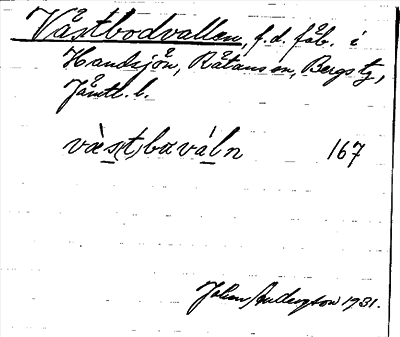 Västbodvallen, f.d. fäb. i
Handsjön, Rätans sn, Bergs tg,
Jämtl. l.
væ̀s(t)bɷváln 167
Johan Andersson 1931.